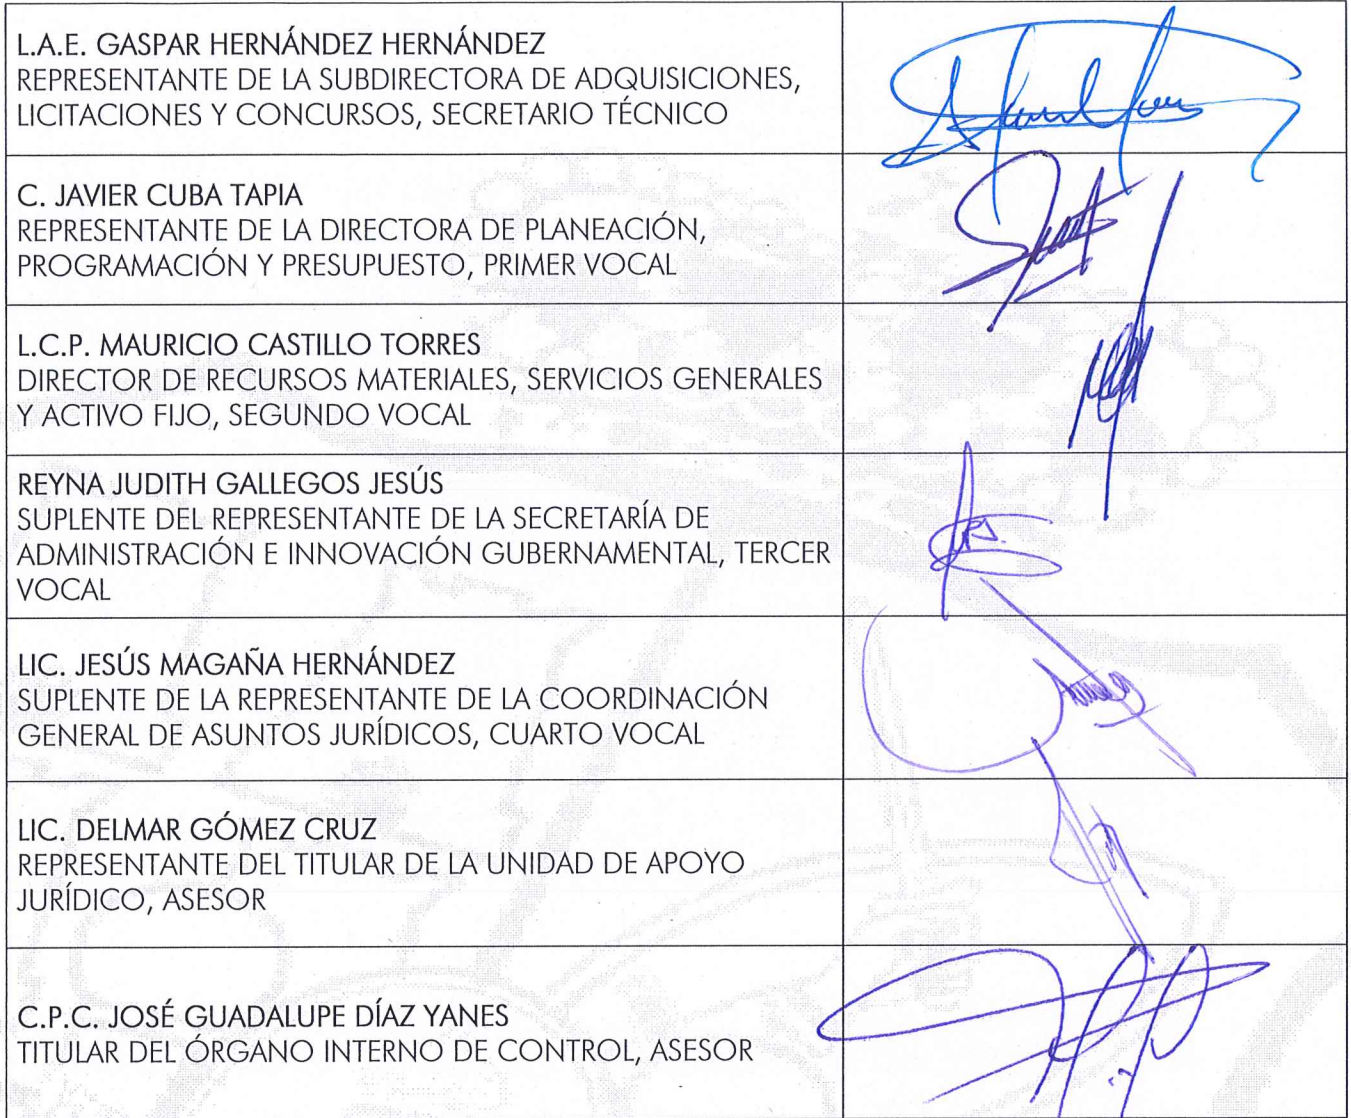 L.A.E. GASPAR HERNÁNDEZ HERNÁNDEZ
REPRESENTANTE DE LA SUBDIRECTORA DE ADQUISICIONES,
LICITACIONES Y CONCURSOS, SECRETARIO TÉCNICO
C. JAVIER CUBA TAPIA
REPRESENTANTE DE LA DIRECTORA DE PLANEACIÓN,
PROGRAMACIÓN Y PRESUPUESTO, PRIMER VOCAL
L.C.P. MAURICIO CASTILLO TORRES
DIRECTOR DE RECURSOS MATERIALES, SERVICIOS GENERALES
Y ACTIVO FIJO, SEGUNDO VOCAL
REYNA JUDITH GALLEGOS JESÚS
SUPLENTE DEL REPRESENTANTE DE LA SECRETARÍA DE
ADMINISTRACIÓN E INNOVACIÓN GUBERNAMENTAL, TERCER
VOCAL
LIC. JESÚS MAGAÑA HERNÁNDEZ
SUPLENTE DE LA REPRESENTANTE DE LA COORDINACIÓN
GENERAL DE ASUNTOS JURÍDICOS, CUARTO VOCAL
LIC. DELMAR GÓMEZ CRUZ
REPRESENTANTE DEL TITULAR DE LA UNIDAD DE APOYO
JURÍDICO, ASESOR
C.P.C. JOSÉ GUADALUPE DÍAZ YANES
TITULAR DEL ÓRGANO INTERNO DE CONTROL, ASESOR